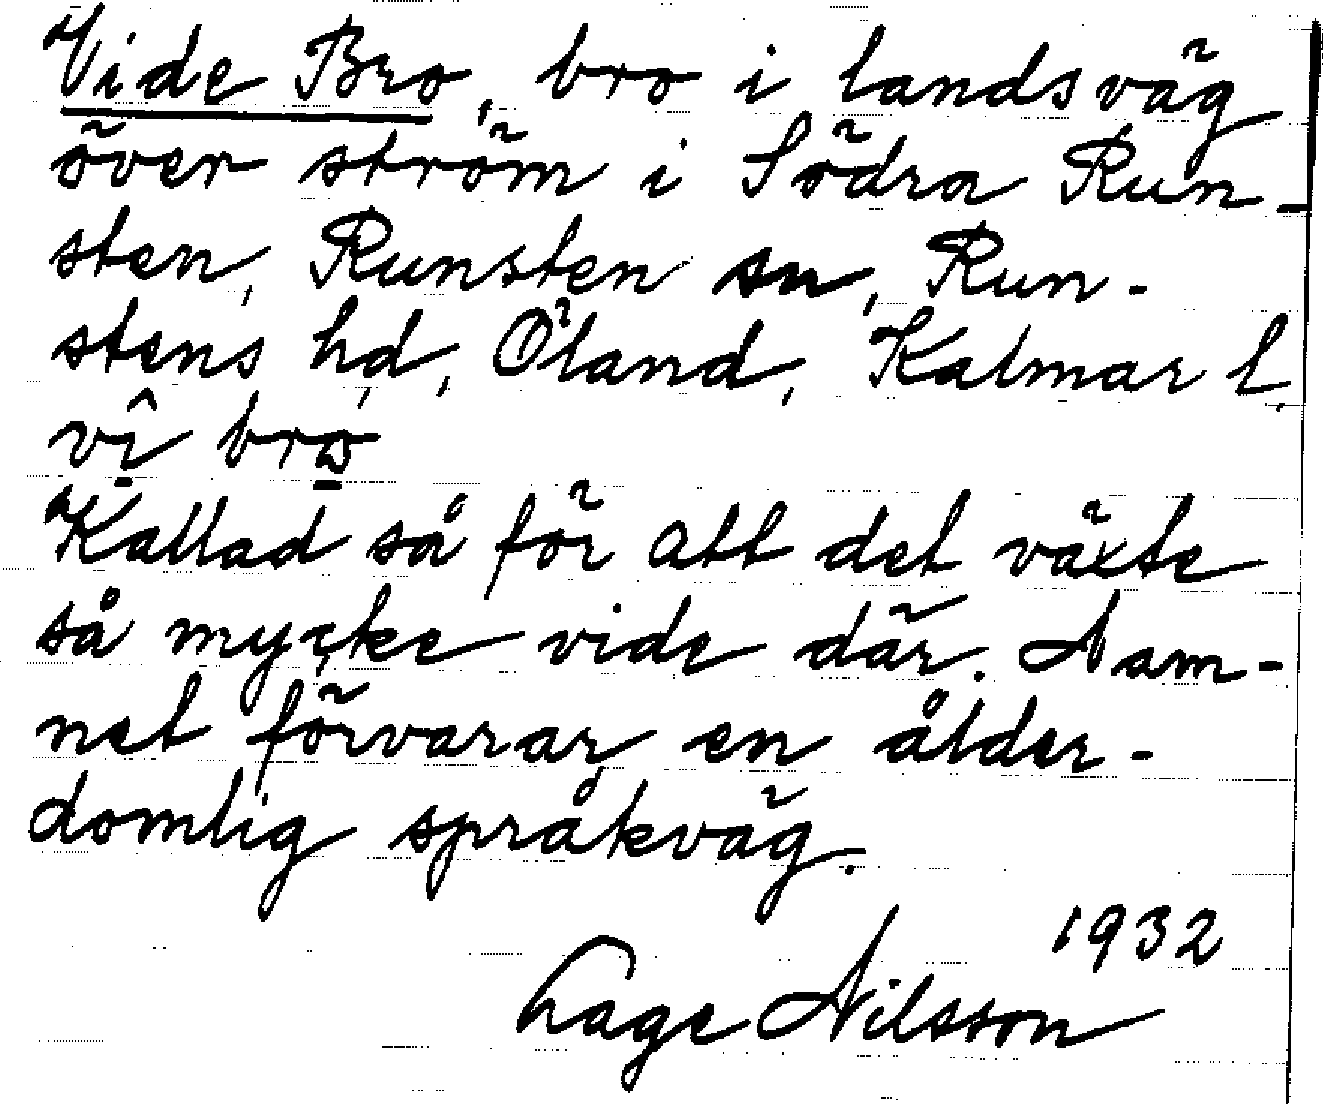 Vide Bro, bro i landsväg
över ström i Södra Run-
sten, Runsten sn, Run-
stens hd, Öland, Kalmar l.
vî brω
Kallad så för att det växte
så mycke vide där. Nam-
net förvarar en ålder-
domlig språkväg.
1932
Lage Nilsson